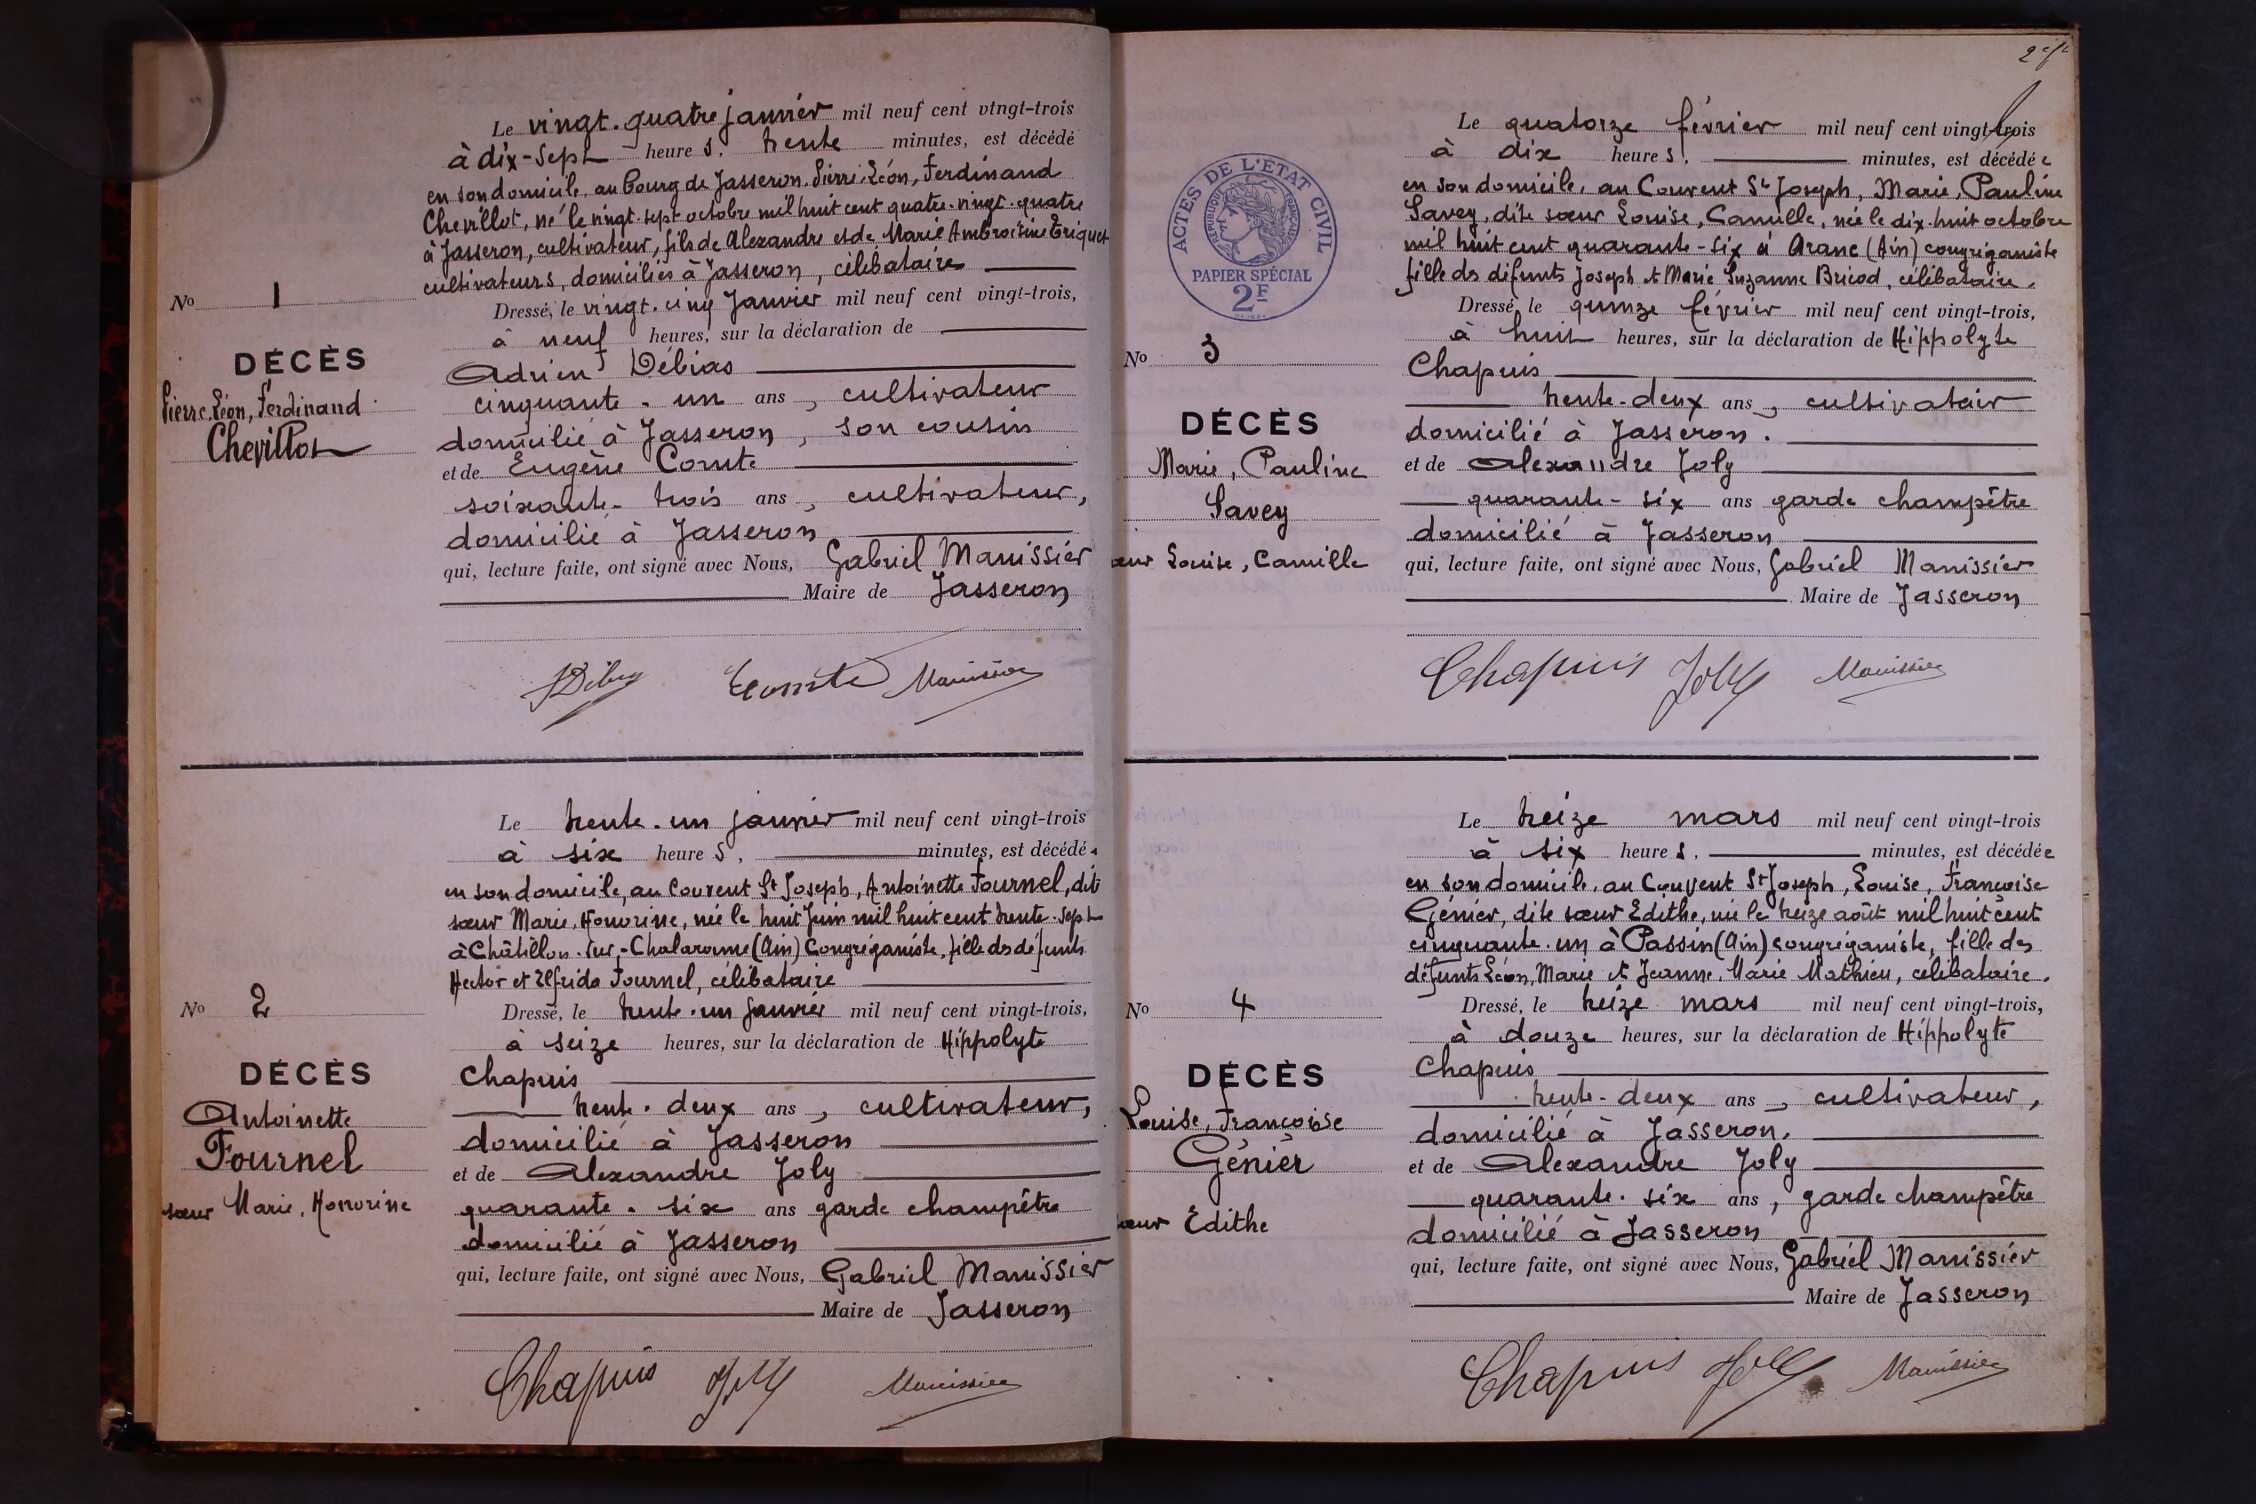 Le vingt-quatre janvier mil neuf cent vingt-trois
à dix-sept heures, trente minutes, est décédé
en son domicile, au bourg de Jasseron, Pierre, Léon, Ferdinand
Chevillot, né le vingt-sept octobre mil huit cent quatre-vingt-quatre
à Jasseron, cultivateur, fils de Alexandre et de Marie Ambroisine Triquet
cultivateurs, domiciliés à Jasseron, célibataire
Dressé, le vingt-cinq Janvier mil neuf cent vingt-trois,
à neuf heures, sur la déclaration de
Adrien Débias
cinquante-un ans, cultivateur
domicilié à Jasseron, son cousin
et de Eugène Comte
soixante-trois ans, cultivateur,
domicilié à Jasseron
qui, lecture faite, ont signé avec Nous, Gabriel Manissier
Maire de Jasseron
No 1
DÉCÈS
Pierre, Léon, Ferdinand
Chevillot
Comte Manissier
Le trente-un janvier mil neuf cent vingt-trois
à six heures, minutes, est décédée
en son domicile, au couvent St Joseph, Antoinette Fournel, dite
sœur Marie, Honorine, née le huit Juin mil huit cent trente-sept
à Châtillon-sur-Chalaronne (Ain) Congréganiste, fille des défunts
Hector et Elfrida Fournel, célibataire
Dressé, le trente-un janvier mil neuf cent vingt-trois,
à seize heures, sur la déclaration de Hippolyte
Chapuis
trente-deux ans, cultivateur,
domicilié à Jasseron
et de Alexandre Joly
quarante-six ans garde champêtre
domicilié à Jasseron
qui, lecture faite, ont signé avec Nous, Gabriel Manissier
Maire de Jasseron
No 2
DÉCÈS
Antoinette
Fournel
sœur Marie, Honorine
Chapuis Joly Manissier
ACTES DE L'ÉTAT CIVIL
RÉPUBLIQUE FRANÇAISE
PAPIER SPÉCIAL
2F
Le quatorze février mil neuf cent vingt-trois
à dix heures, minutes, est décédée
en son domicile, au Couvent St Joseph, Marie, Pauline
Savey, dite sœur Louise, Camille, née le dix-huit octobre
mil huit cent quarante-six à Aranc (Ain) congréganiste
fille des défunts Joseph et Marie Suzanne Bricod, célibataire.
Dressé, le quinze février mil neuf cent vingt-trois,
à huit heures, sur la déclaration de Hippolyte
Chapuis
trente-deux ans, cultivatair
domicilié à Jasseron.
et de Alexandre Joly
quarante-six ans garde champêtre
domicilié à Jasseron
qui, lecture faite, ont signé avec Nous, Gabriel Manissier
Maire de Jasseron
No 3
DÉCÈS
Marie, Pauline
Savey
sœur Louise, Camille
Chapuis Joly Manissier
Le treize mars mil neuf cent vingt-trois
à six heures, minutes, est décédée
en son domicile, au Couvent St Joseph, Louise, Françoise
Génier, dite sœur Edithe, née le treize août mil huit cent
cinquante-un à Passin (Ain) congréganiste, fille des
défunts Léon, Marie et Jeanne, Marie Mathieu, célibataire.
Dressé, le treize mars mil neuf cent vingt-trois,
à douze heures, sur la déclaration de Hippolyte
Chapuis
trente-deux ans, cultivateur,
domicilié à Jasseron.
et de Alexandre Joly
quarante-six ans, garde champêtre
domicilié à Jasseron
qui, lecture faite, ont signé avec Nous, Gabriel Manissier
Maire de Jasseron
No 4
DÉCÈS
Louise, Françoise
Génier
sœur Edithe
Chapuis Joly Manissier